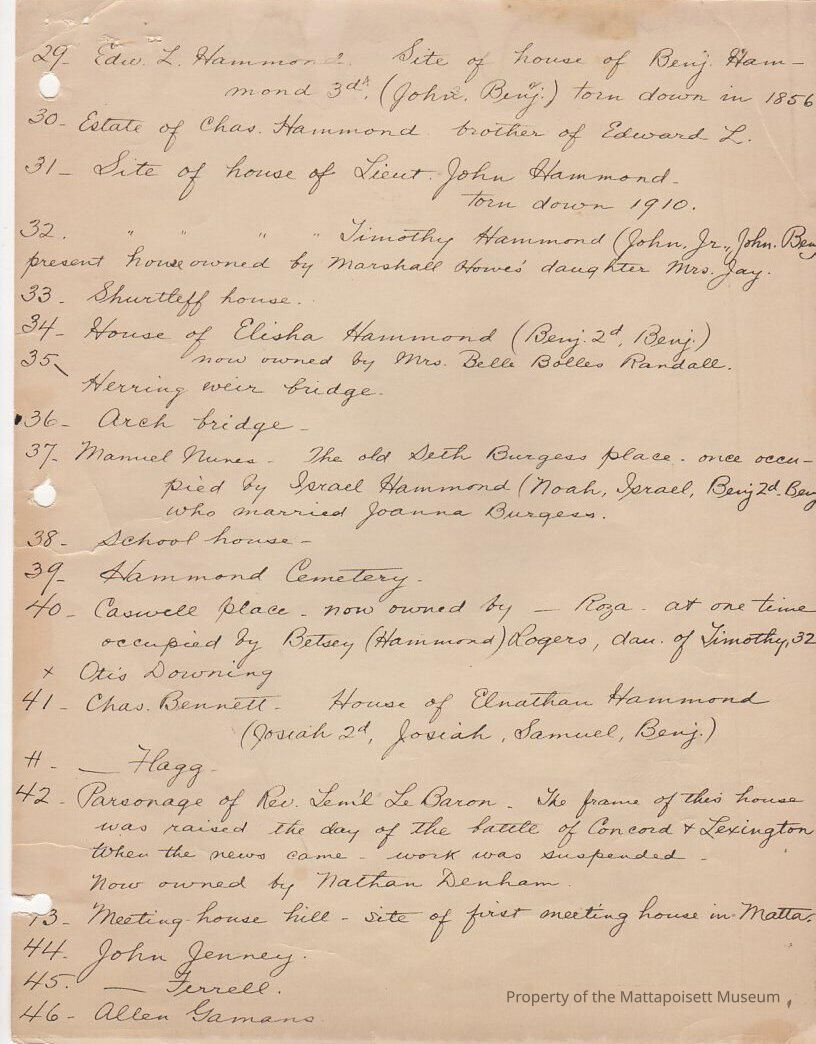 29- Edw. L. Hammond. Site of house of Benj. Ham-
mond 3d. (John, Benj.) torn down in 1856
30- Estate of Chas. Hammond brother of Edward L.
31- Site of house of Lieut. John Hammond-
torn down 1910.
32. " " " " Timothy Hammond (John, Jr., John. Benj
present house owned by Marshall Howes' daughter Mrs. Jay.
33- Shurtleff house.
34- House of Elisha Hammond (Benj. 2d, Benj.)
now owned by Mrs. Belle Bolles Randall.
35
Herring weir bridge.
36- Arch bridge-
37- Manuel Nunes- The old Seth Burgess place- once occu-
pied by Israel Hammond (Noah, Israel, Benj 2d. Benj
who married Joanna Burgess.
38- School house-
39- Hammond Cemetery.
40- Caswell place- now owned by — Roza- at one time
occupied by Betsey (Hammond) Rogers, dau. of Timothy, 32
x Otis Downing
41- Chas. Bennett- House of Elnathan Hammond
(Josiah 2d, Josiah, Samuel, Benj.)
#- — Flagg-
42- Parsonage of Rev. Lem'l Le Baron- The frame of this house
was raised the day of the battle of Concord & Lexington
When the news came- work was suspended-
Now owned by Nathan Denham.
3- Meeting-house hill- site of first meeting house in Matta.
44- John Jenney.
45. — Ferrell.
46- Allen Gamans
Property of the Mattapoisett Museum